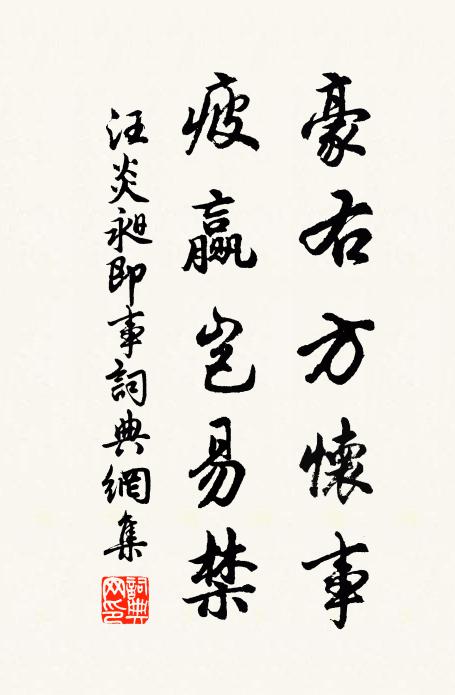 豪右方懷事
疲羸岂易禁
汪炎昶即事詞典網集
詞典网印